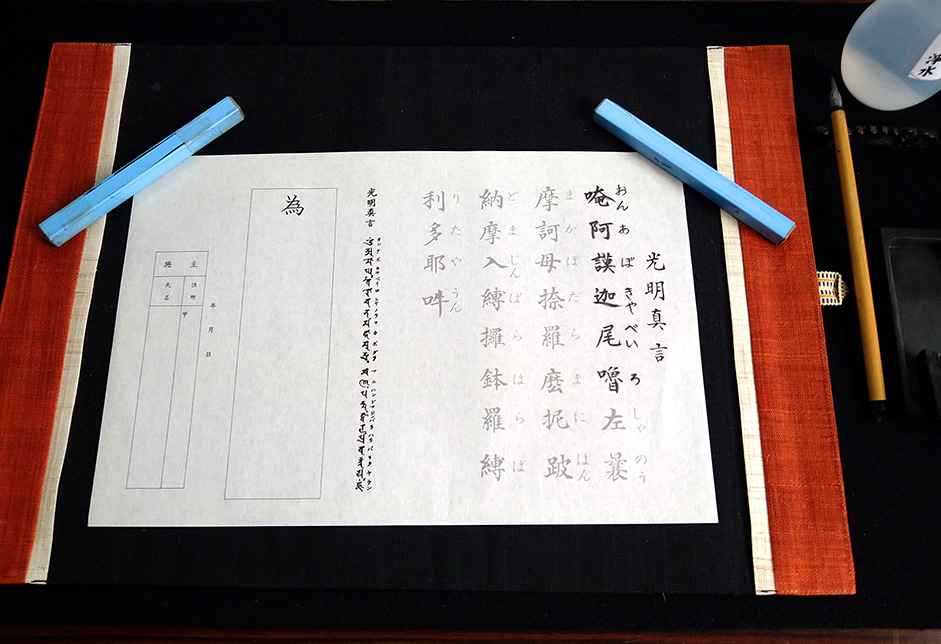 浄水
光明真言
おん あ ぼ きゃ べい ろ しゃ のう
唵阿謨迦尾嚕左曩
ま か ぼ だ ら ま に はん
摩訶母捺羅麽抳跛
ど ま じん ば ら は ら ば
納摩入縛攞鉢羅縛
り た や うん
利多耶吽
光明真言
為
年 月 日
施主
住所 〒
氏名